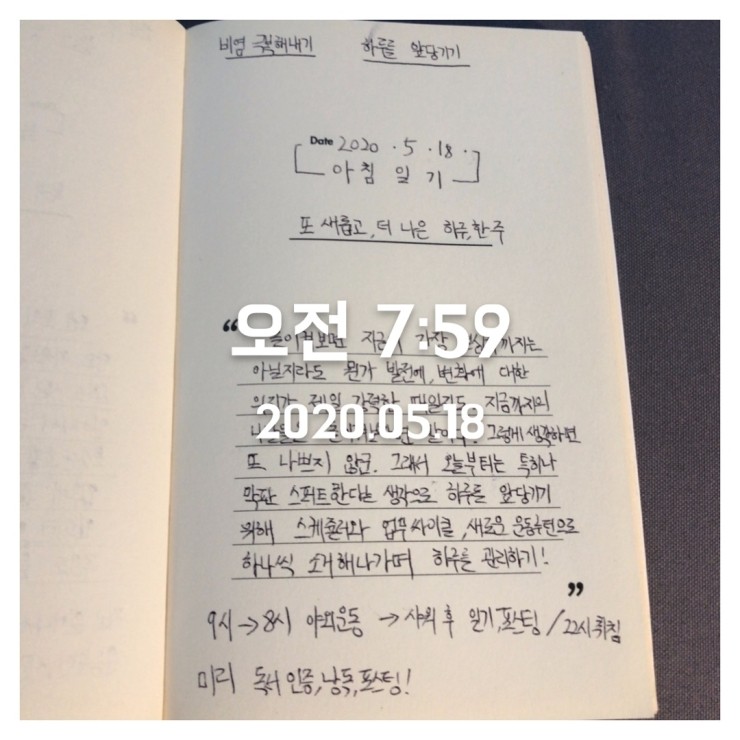 비염 극복해내기 하루를 앞당기기
Date 2020 . 5 . 18 .
아침 일기
또 새롭고, 더 나은 하루, 한 주
오전 7:59
“ 지금이 가장
아닐지라도 뭔가 발전에, 변화에 대한
의지가 제일 강력한 때일지도 지금까지의
2020.05.18
그렇게 생각하면
또 나쁘지 않군. 그래서 오늘부터는 특히나
막판 스퍼트한다는 생각으로 하루를 앞당기기
위해 스케줄러와 업무 싸이클, 새로운 운동루틴으로
하나씩 소거해나가며 하루를 관리하기!
”
9시 → 8시 야외운동 → 샤워 후 일기, 포스팅 / 22시 취침
미리 독서 인증, 낭독, 포스팅!